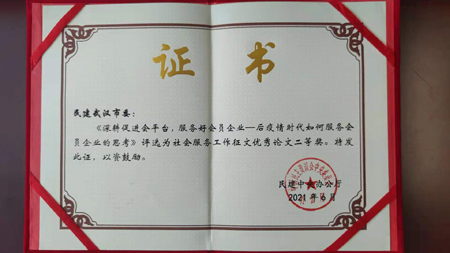 证书
民建武汉市委：
《深耕促进会平台，服务好会员企业—后疫情时代如何服务会
员企业的思考》评选为社会服务工作征文优秀论文二等奖。特发
此证，以资鼓励。
民建中央办公厅
2021年6月